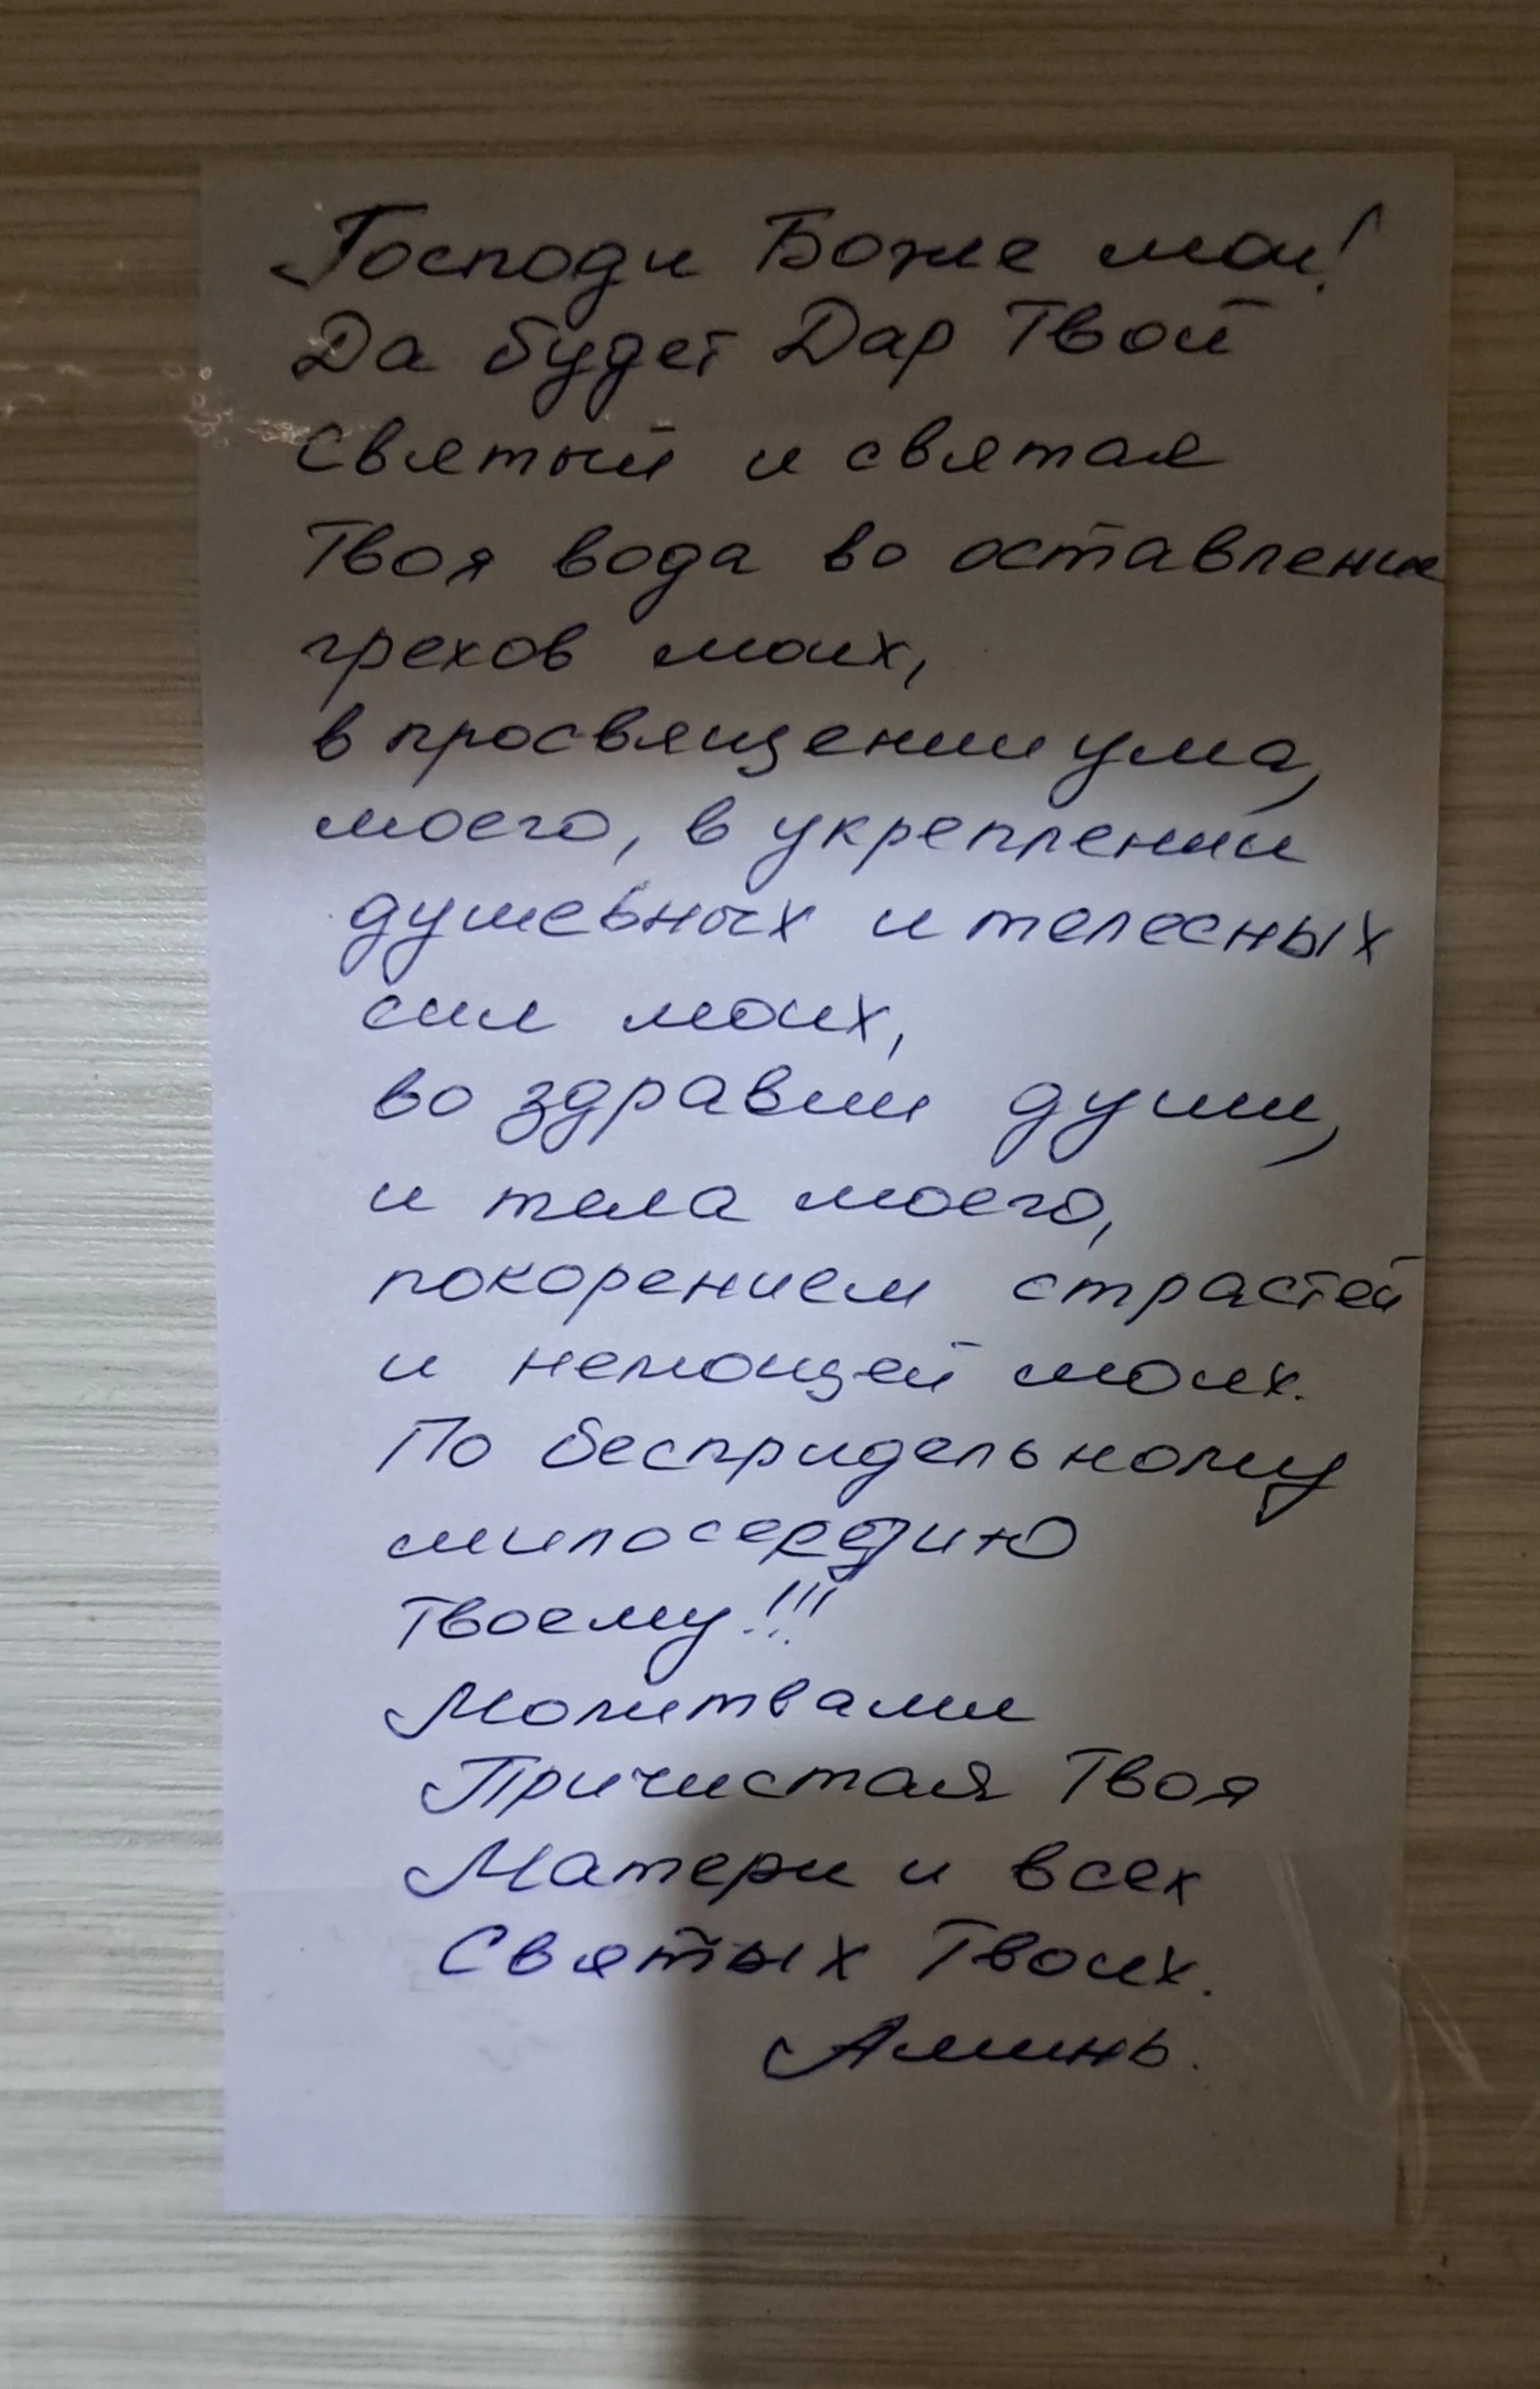 Господи Боже мои!
Да будет Дар Твой
святый и святая
Твоя вода во оставление
грехов моих,
в просвящении ума,
моего, в укреплении
душевных и телесных
сил моих,
во здравии души,
и тела моего,
покорением страстей
и немощей моих.
По беспридельному
милосердию
Твоему!!!
Молитвами
Причистая Твоя
Матери и всех
Святых Твоих.
Аминь.